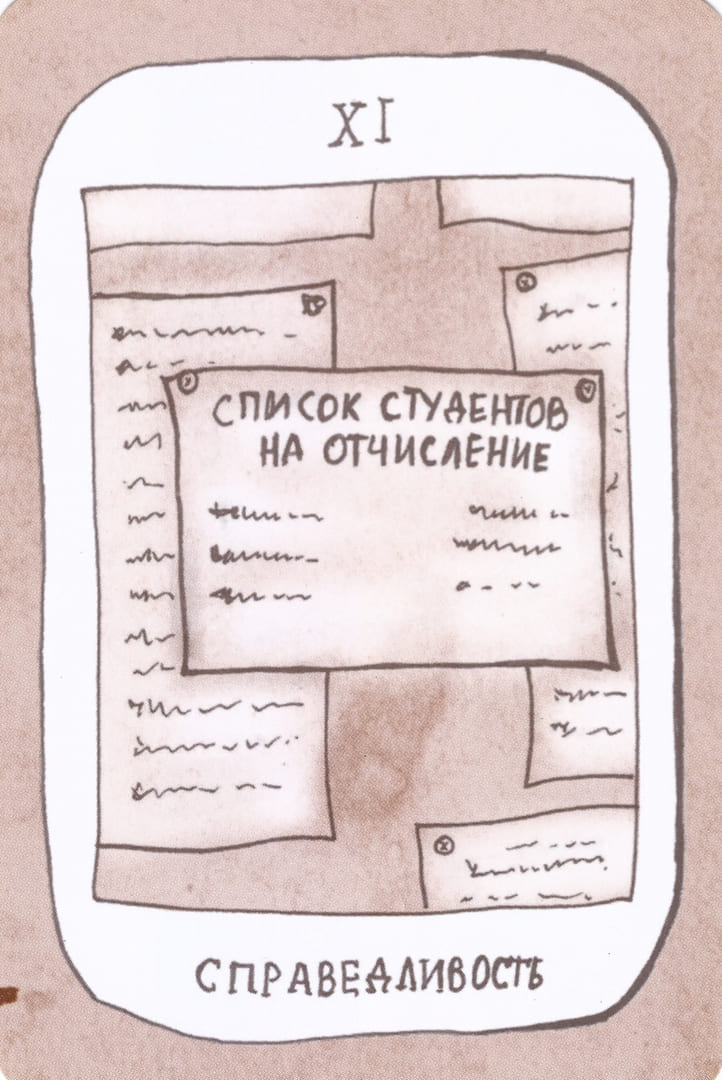 XI
СПИСОК СТУДЕНТОВ
НА ОТЧИСЛЕНИЕ
СПРАВЕДЛИВОСТЬ